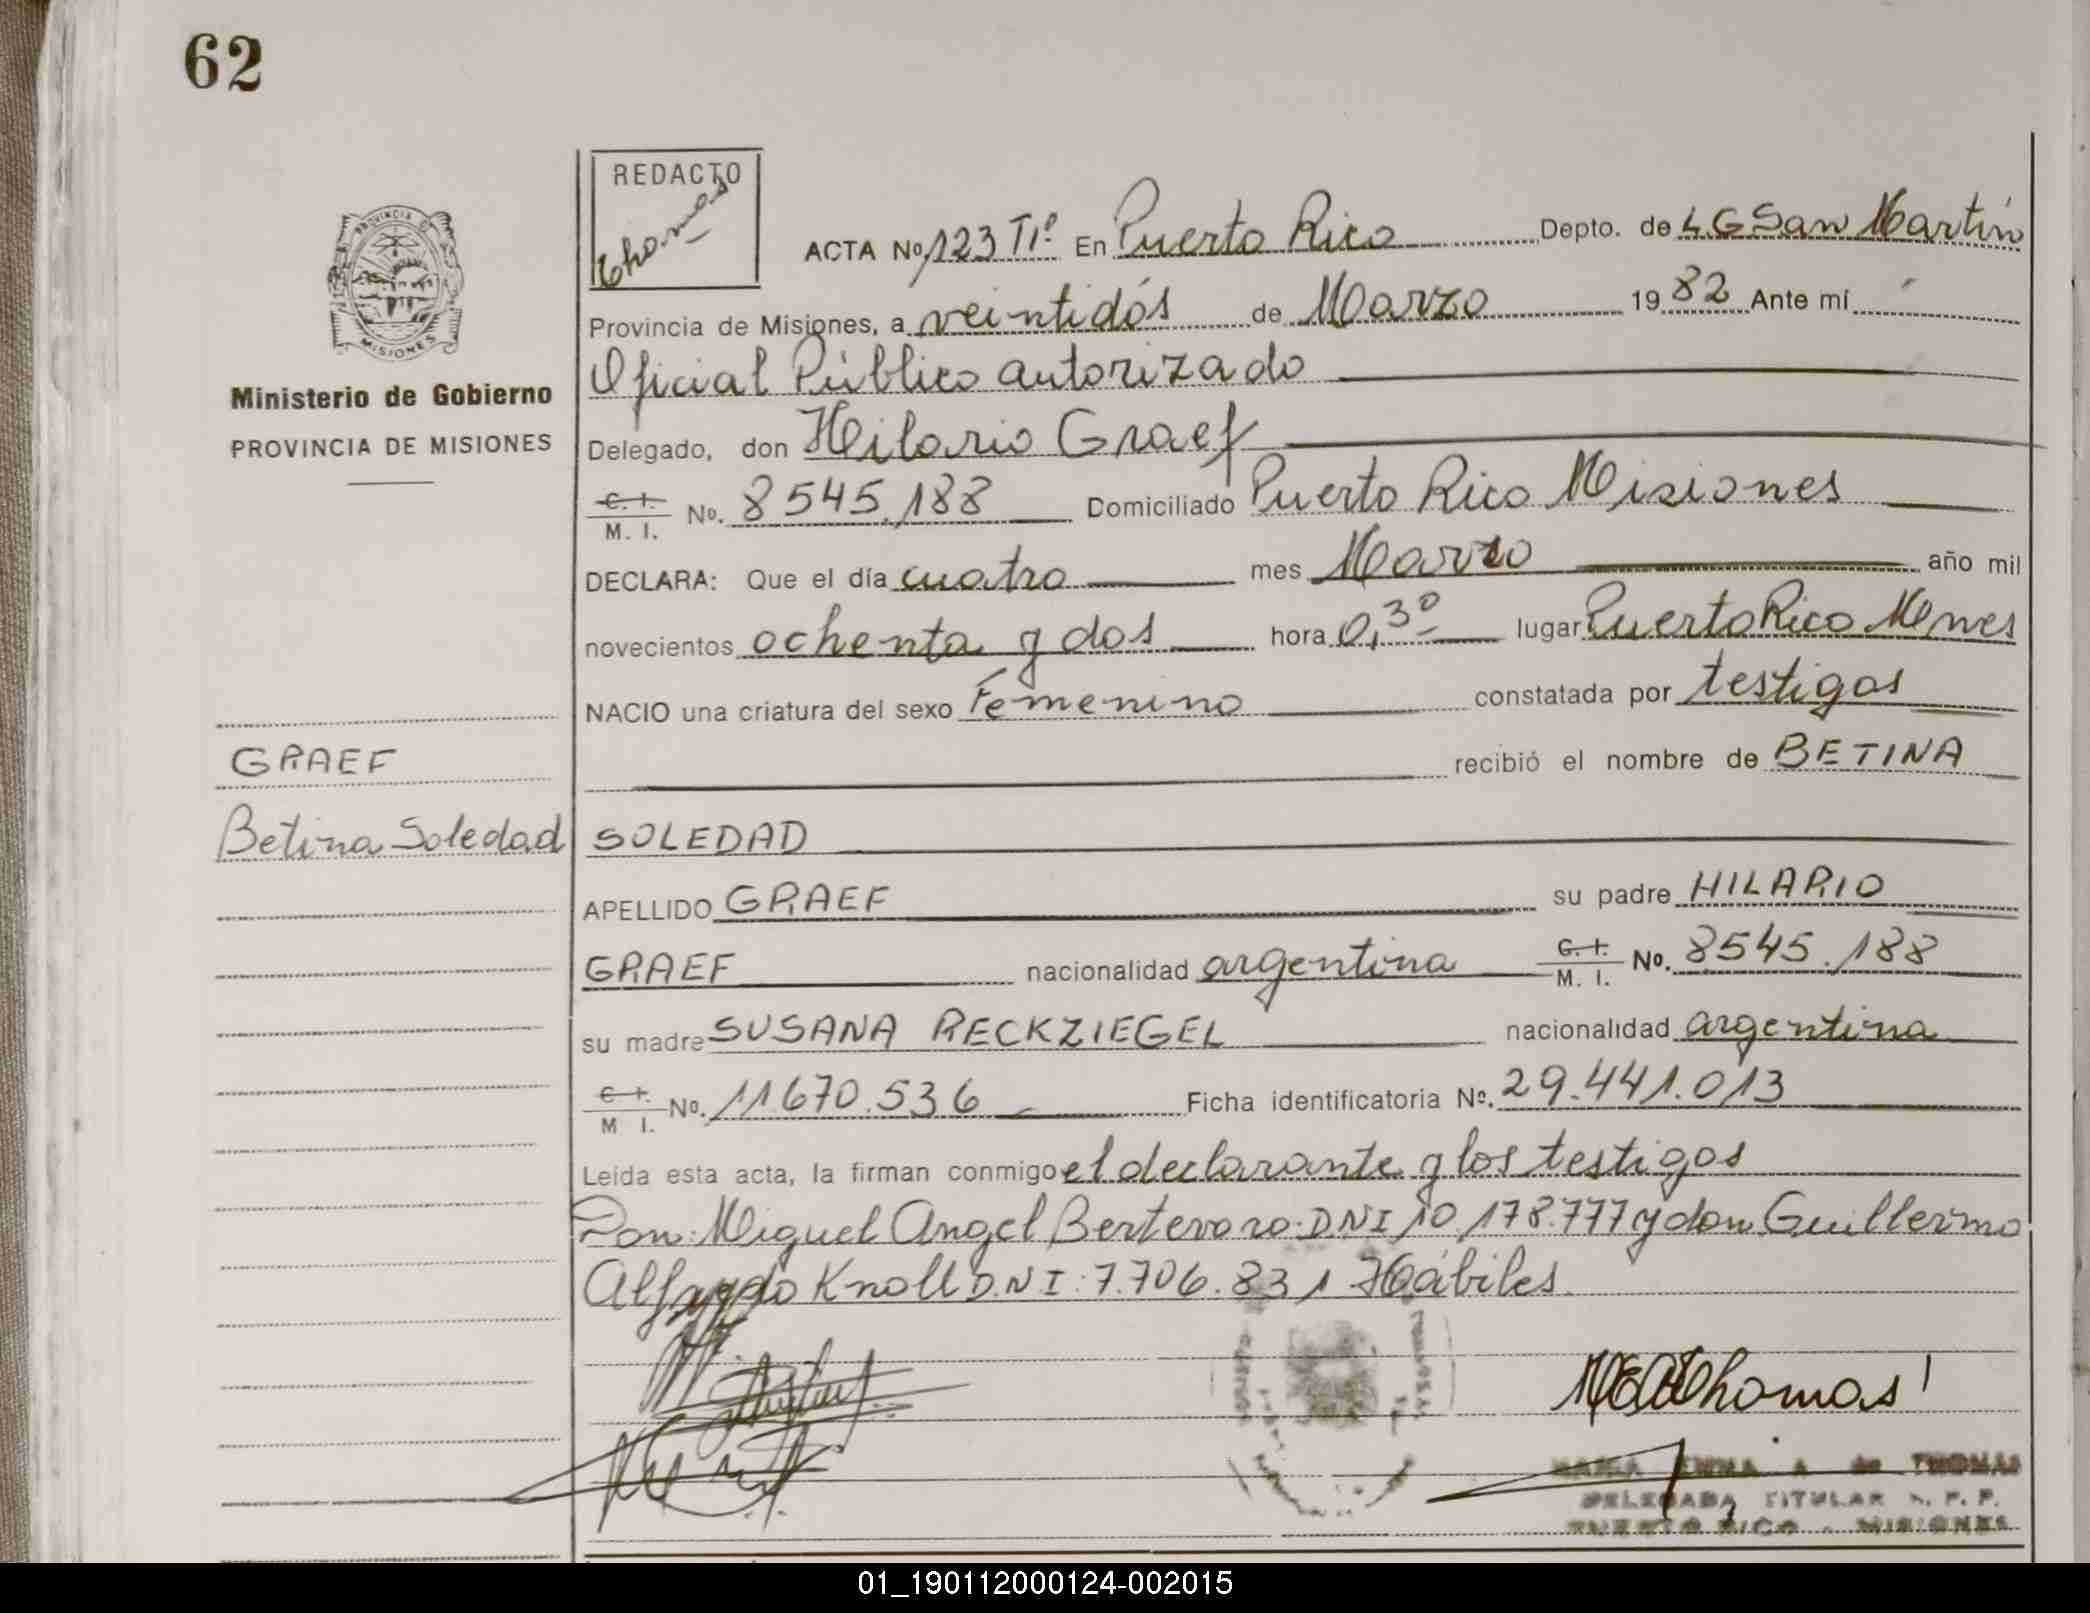 62
REDACTO
Thomas
ACTA No 123 TIº En Puerto Rico Depto. de L G San Martín
PROVINCIA DE MISIONES
Provincia de Misiones, a veintidós de Marzo 1982 Ante mí
Oficial Público autorizado
Ministerio de Gobierno
PROVINCIA DE MISIONES
Delegado, don Hilario Graef
C. I. M. I. No. 8545.188 Domiciliado Puerto Rico Misiones
DECLARA: Que el día cuatro mes Marzo año mil
novecientos ochenta y dos hora 0,30 lugar Puerto Rico Mnes
NACIO una criatura del sexo Femenino constatada por testigos
GRAEF
recibió el nombre de BETINA
Betina Soledad
SOLEDAD
APELLIDO GRAEF su padre HILARIO
GRAEF nacionalidad argentina C. I. M. I. No. 8545.188
su madre SUSANA RECKZIEGEL nacionalidad argentina
C. I. M. I. No. 11.670.536 Ficha identificatoria Nº. 29.441.013
Leída esta acta, la firman conmigo el declarante y los testigos
Don: Miguel Angel Bertevoro: DNI 10.178.777 y don Guillermo
Alfredo Knoll D.N I: 7.706.831 Hábiles.
MEAThomas
MARIA EMMA A de THOMAS
DELEGADA TITULAR R. P. P.
PUERTO RICO - MISIONES
01_190112000124-002015